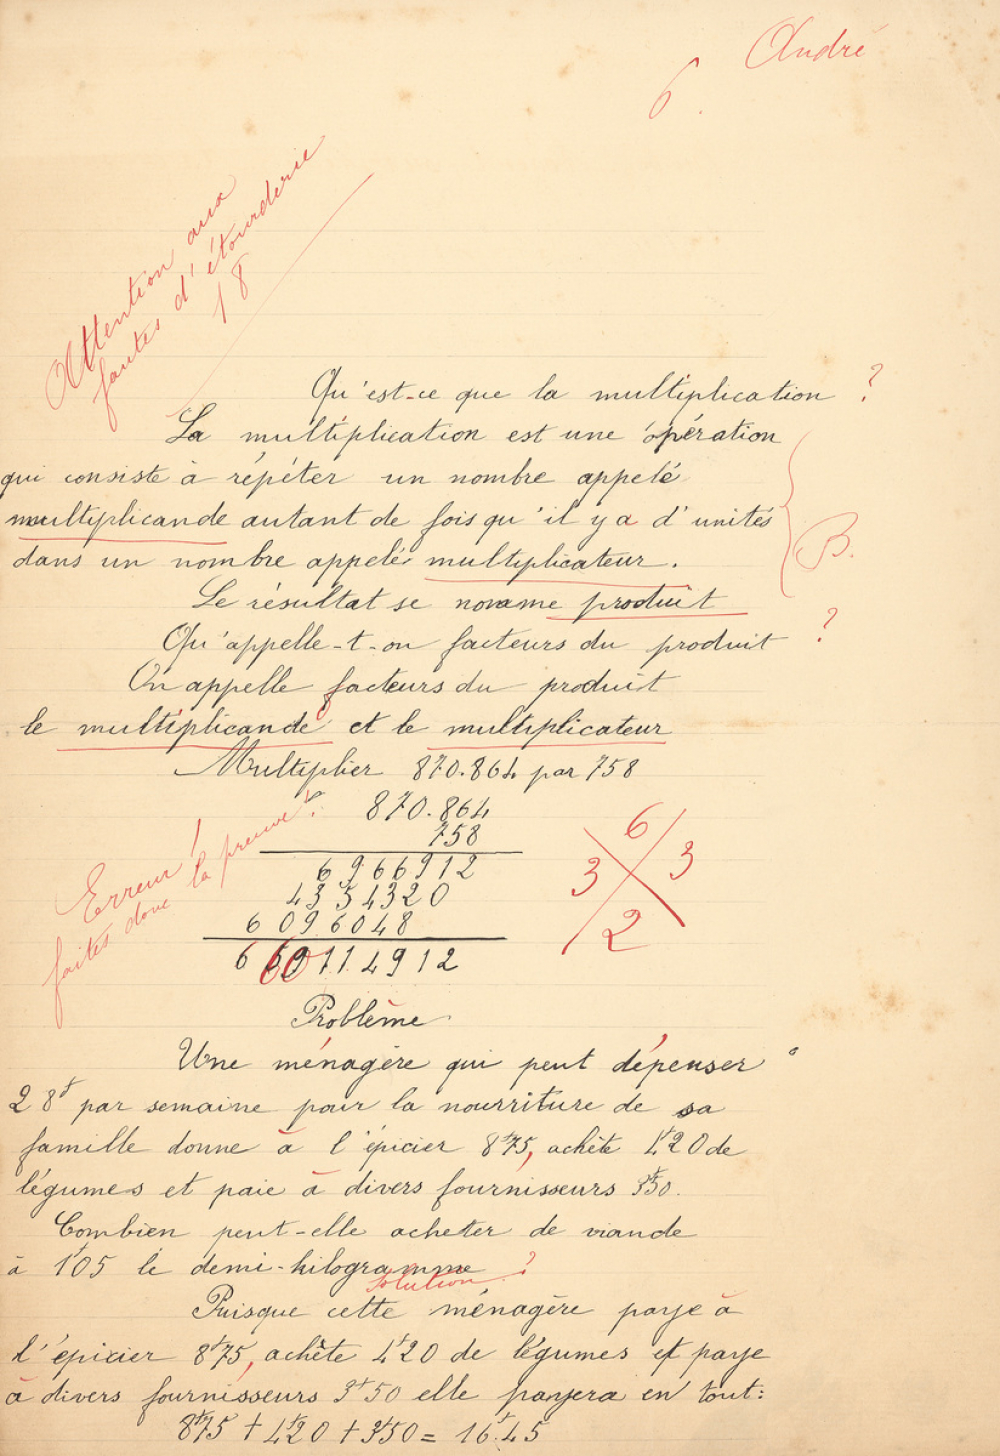 André
6.
Attention aux
fautes d'étourderie
18
Qu'est-ce que la multiplication ?
La multiplication est une opération
qui consiste à répéter un nombre appelé
multiplicande autant de fois qu'il y a d'unités
dans un nombre appelé multiplicateur.
B.
Le résultat se nomme produit
Qu'appelle-t-on facteurs du produit ?
On appelle facteurs du produit
le multiplicande et le multiplicateur
Multiplier 870.864 par 758
Erreur !
faites donc la preuve !
870.864
758
6966912
4354320
6096048
660114912
6
3 3
2
Problème
Une ménagère qui peut dépenser
28f par semaine pour la nourriture de sa
famille donne à l'épicier 8f75, achète 4f20 de
légumes et paie à divers fournisseurs 3f50.
Combien peut-elle acheter de viande
à 1f05 le demi-kilogramme ?
Solution
Puisque cette ménagère paye à
l'épicier 8f75, achète 4f20 de légumes et paye
à divers fournisseurs 3f50 elle payera en tout:
8f75 + 4f20 + 3f50 = 16f.45